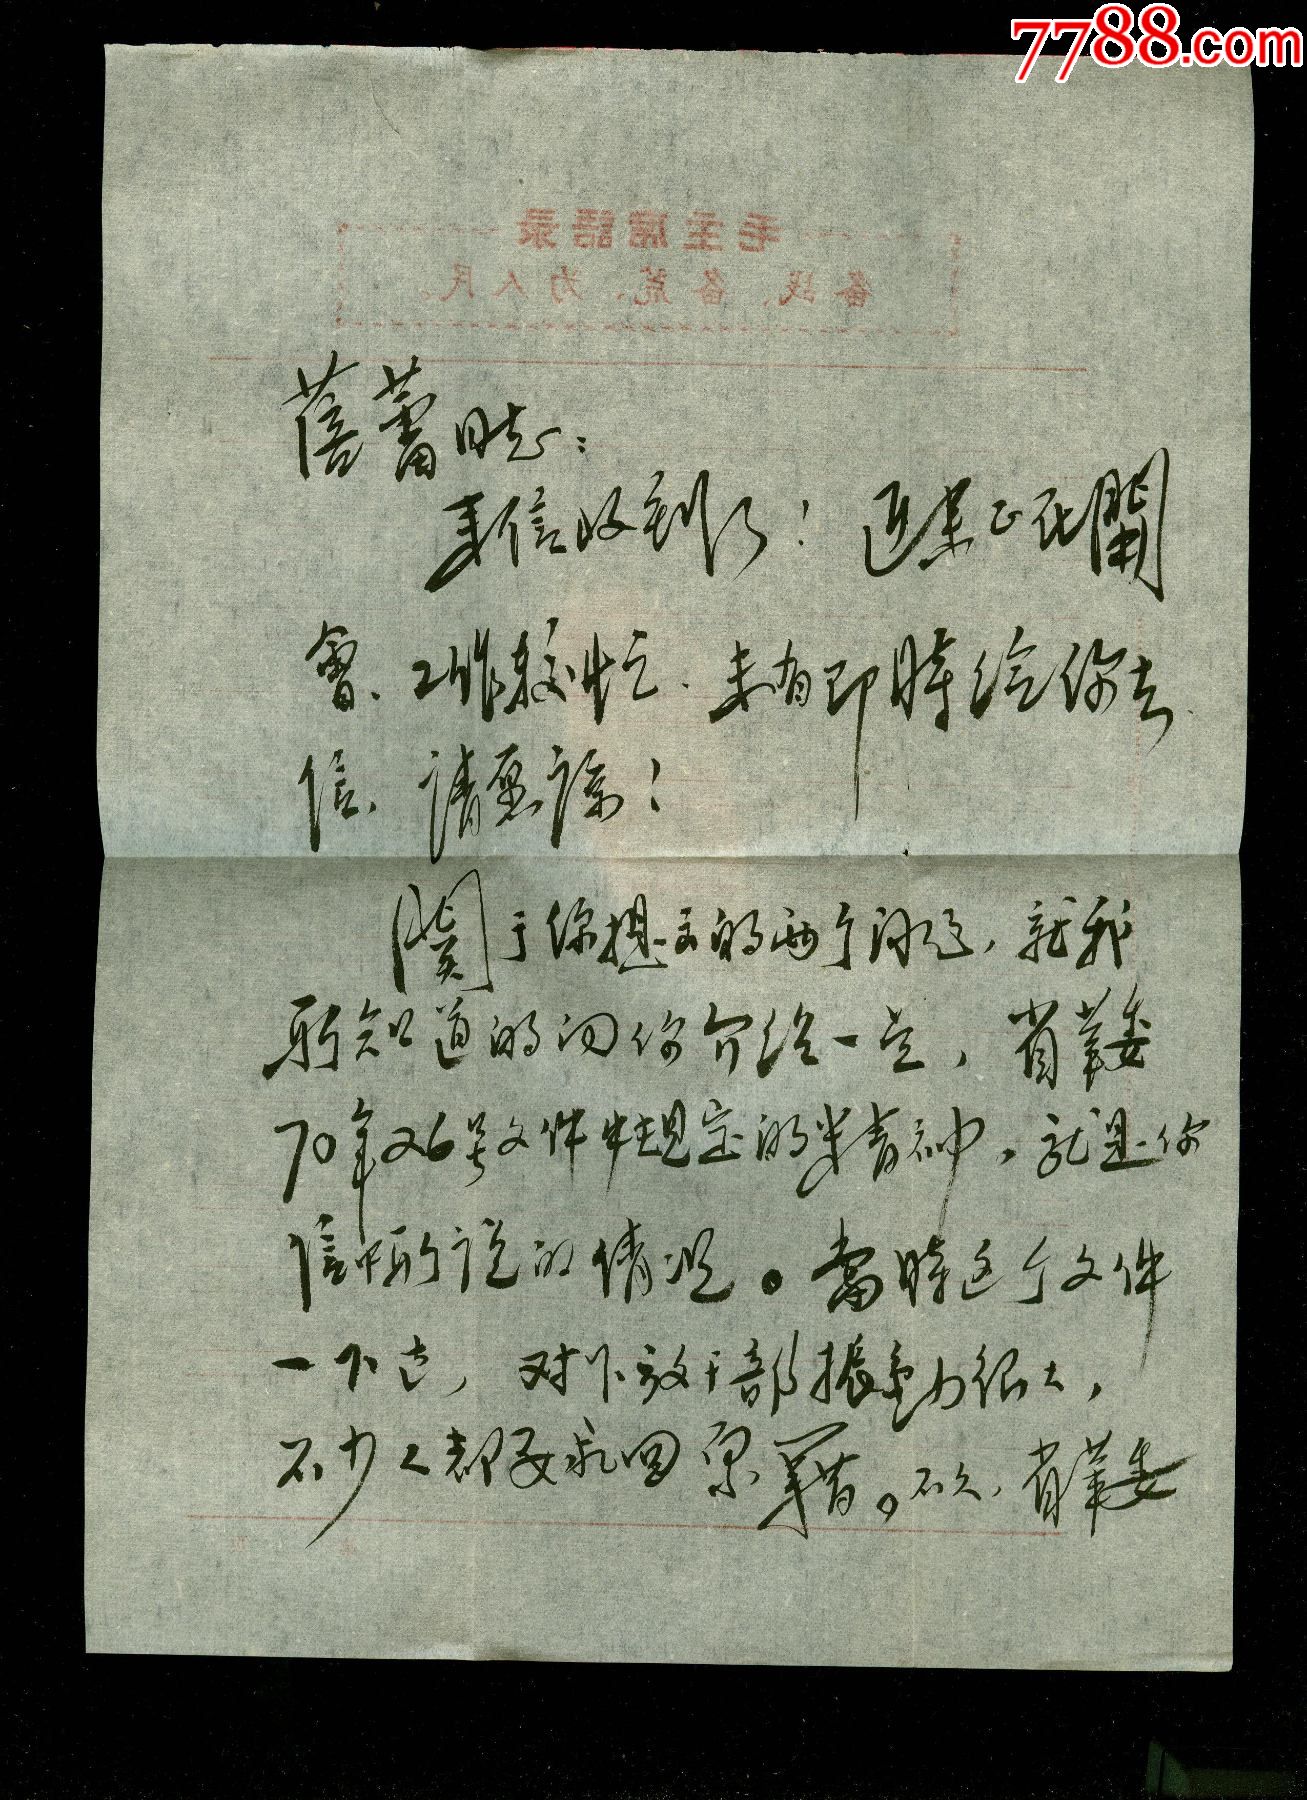 7788.com
毛主席語录
备战、备荒、为人民。
蓓蕾同志：
来信收到了！近来正在開
會、工作较忙、未有即時给你去
信、请原谅！
関于你提出的两个问题，就我
所知道的向你介绍一定，省革委
70年26号文件中规定的精神，就是你
信中所说的情况。當時这个文件
一下达，对下放干部振動很大，
不少人都要求回原籍。不久，省革委